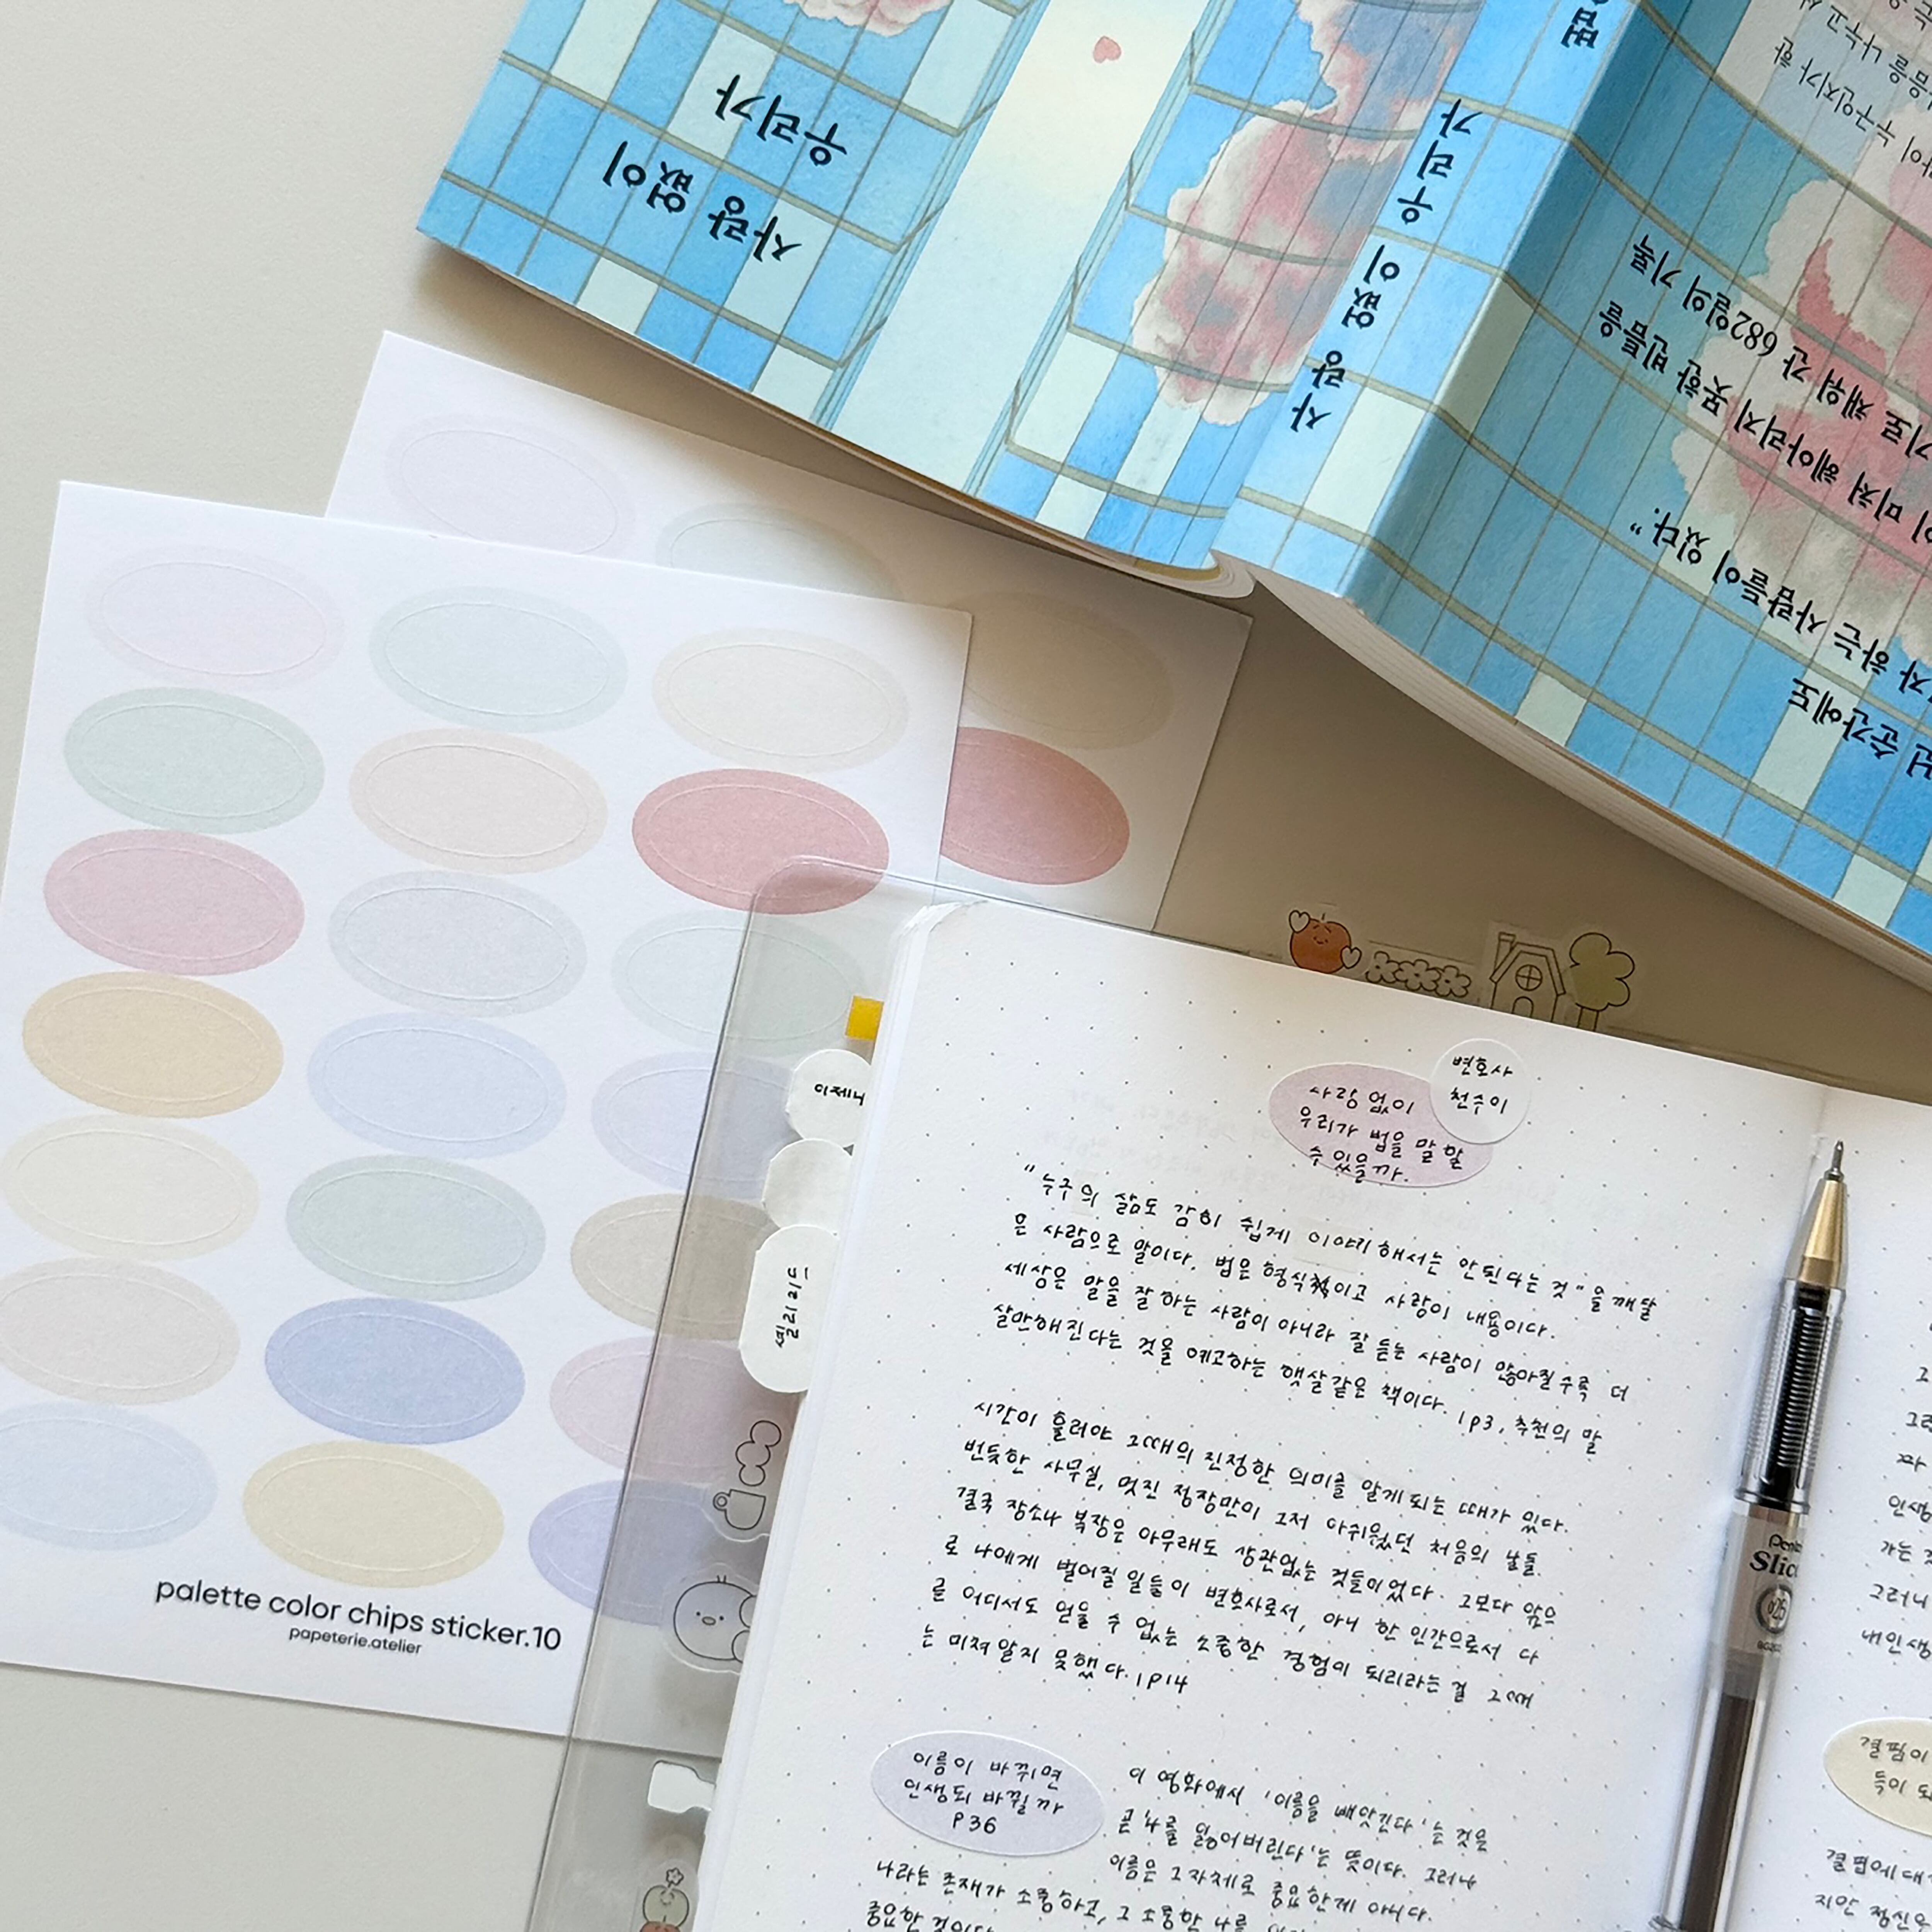 사랑 없이
우리가
사랑 없이 우리가 법
누구인지가 한
을 나누고
미처 헤아리지 못한 빈틈을
기로 채워 간 682일의 기록
순간에도
자 하는 사람들이 있다.”
palette color chips sticker.10
papeterie.atelier
이제니
셀리리드
사랑 없이
우리가 법을 말 할
수 있을까.
변호사
천수이
“누구의 삶도 감히 쉽게 이야기해서는 안된다는 것“을 깨달
은 사람으로 말이다. 법은 형식이고 사랑이 내용이다.
세상은 말을 잘 하는 사람이 아니라 잘 듣는 사람이 많아질수록 더
살만해진다는 것을 예고하는 햇살같은 책이다. |p3, 추천의 말
시간이 흘러야 그때의 진정한 의미를 알게되는 때가 있다.
번듯한 사무실, 멋진 정장만이 그저 아쉬웠던 처음의 날들.
결국 장소나 복장은 아무래도 상관없는 것들이었다. 그보다 앞으
로 나에게 벌어질 일들이 변호사로서, 아니 한 인간으로서 다
른 어디서도 얻을 수 없는 소중한 경험이 되리라는 걸 그때
는 미처 알지 못했다. |p14
이름이 바뀌면
인생도 바뀔까
P36
이 영화에서 '이름을 빼앗긴다'는 것은
곧 '나를 잃어버린다'는 뜻이다. 그러나
이름은 그 자체로 중요한게 아니다.
나라는 존재가 소중하고, 그 소중한 나를
중요한 것이다.
Slic
0.25
인생
가는
그러나
내인생
결핍이
득이 되
결핍에 대
지만 정신